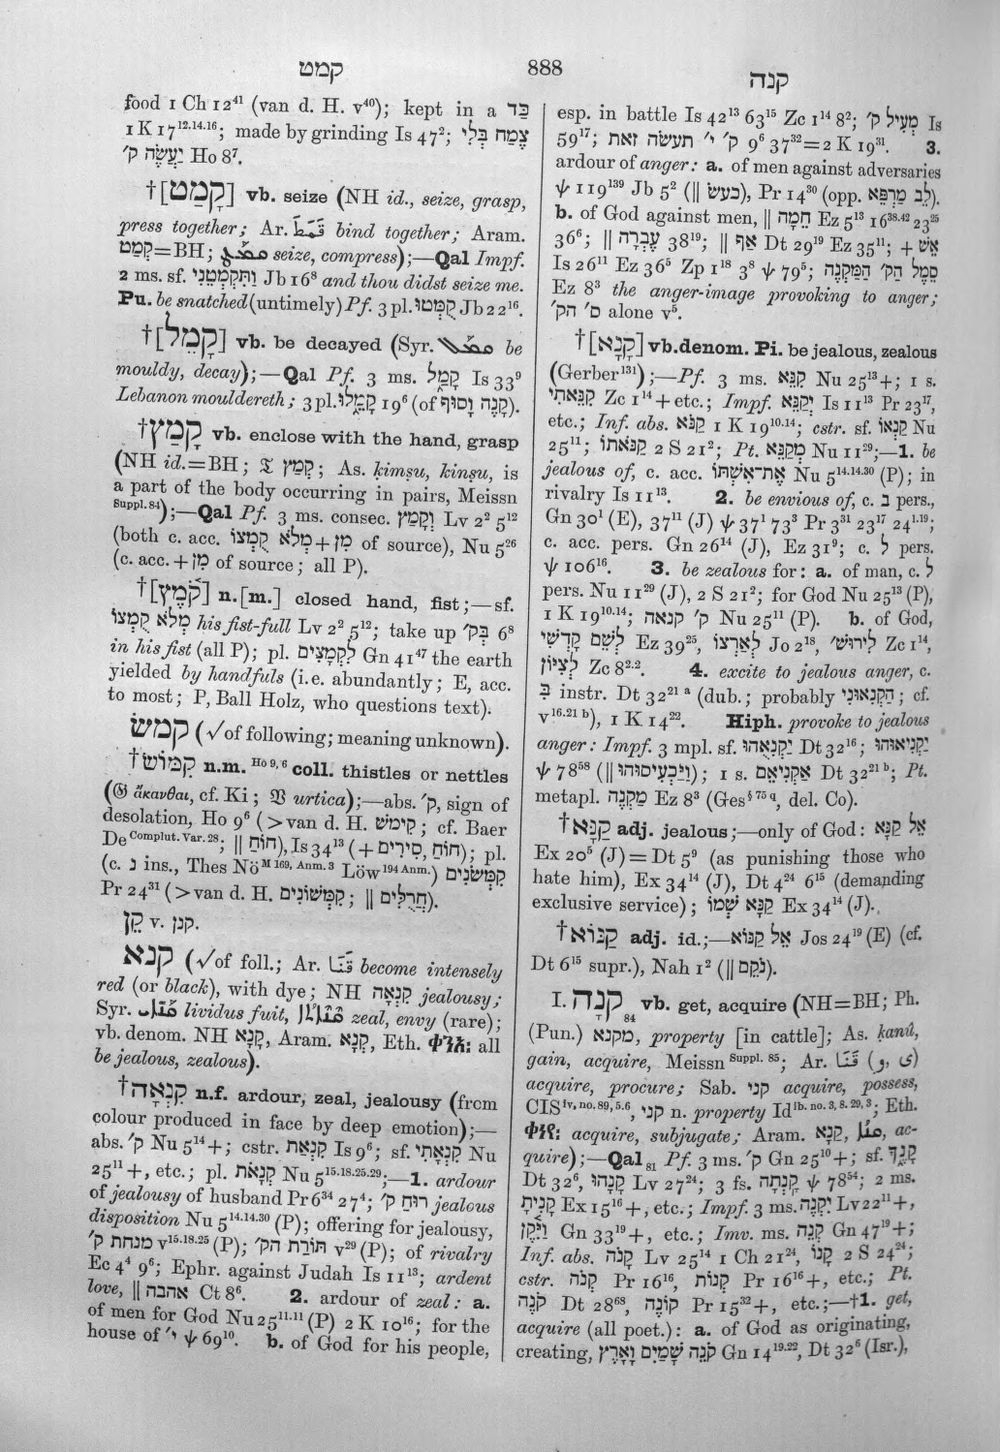 קמט
888
קנה
food 1 Ch 12⁴¹ (van d. H. v⁴⁰); kept in a כַּד
1 K 17¹²·¹⁴·¹⁶; made by grinding Is 47²; צֶמַח בְּלִי
יַעֲשֶׂה ק׳ Ho 8⁷.
†[קָמַט] vb. seize (NH id., seize, grasp,
press together; Ar. bind together; Aram.
קְמַט=BH; seize, compress);—Qal Impf.
2 ms. sf. וַתִּקְמְטֵנִי Jb 16⁸ and thou didst seize me.
Pu. be snatched (untimely) Pf. 3 pl. קֻמְּטוּ Jb 22¹⁶.
†[קָמֵל] vb. be decayed (Syr. be
mouldy, decay);—Qal Pf. 3 ms. קָמַל Is 33⁹
Lebanon mouldereth; 3 pl. קָמֵלוּ 19⁶ (of קָנֶה וָסוּף).
†קָמַץ vb. enclose with the hand, grasp
(NH id.=BH; 𝔗 קְמַץ; As. ḳimṣu, ḳinṣu, is
a part of the body occurring in pairs, Meissn
Suppl. 84);—Qal Pf. 3 ms. consec. וְקָמַץ Lv 2² 5¹²
(both c. acc. מְלֹא קֻמְצוֹ + מִן of source), Nu 5²⁶
(c. acc. + מִן of source; all P).
†[קֹמֶץ] n.[m.] closed hand, fist;—sf.
מְלֹא קֻמְצוֹ his fist-full Lv 2² 5¹²; take up בְּק׳ 6⁸
in his fist (all P); pl. לִקְמָצִים Gn 41⁴⁷ the earth
yielded by handfuls (i.e. abundantly; E, acc.
to most; P, Ball Holz, who questions text).
קמשׂ (√of following; meaning unknown).
†קִמּוֹשׂ n.m. Ho 9, 6 coll. thistles or nettles
(𝔊 ἄκανθαι, cf. Ki; 𝔙 urtica);—abs. ק׳, sign of
desolation, Ho 9⁶ (>van d. H. קימוש; cf. Baer
De Complut. Var. 28; ‖ חוֹחַ), Is 34¹³ (+ סִירִים, חוֹחַ); pl.
(c. נ ins., Thes Nö M 169, Anm. 3 Löw 194 Anm.) קִמְּשֹׂנִים
Pr 24³¹ (>van d. H. קִמְּשׂוֹנִים; ‖ חֲרֻלִּים).
קֵן v. קנן.
קנא (√of foll.; Ar. become intensely
red (or black), with dye; NH קִנְאָה jealousy;
Syr. lividus fuit, zeal, envy (rare);
vb. denom. NH קִנֵּא, Aram. קַנֵּא, Eth. ቀንአ: all
be jealous, zealous).
†קִנְאָה n.f. ardour, zeal, jealousy (from
colour produced in face by deep emotion);—
abs. ק׳ Nu 5¹⁴+; cstr. קִנְאַת Is 9⁶; sf. קִנְאָתִי Nu
25¹¹+, etc.; pl. קְנָאֹת Nu 5¹⁵·¹⁸·²⁵·²⁹;—1. ardour
of jealousy of husband Pr 6³⁴ 27⁴; רוּחַ ק׳ jealous
disposition Nu 5¹⁴·¹⁴·³⁰ (P); offering for jealousy,
מנחת ק׳ v¹⁵·¹⁸·²⁵ (P); תּוֹרַת הק׳ v²⁹ (P); of rivalry
Ec 4⁴ 9⁶; Ephr. against Judah Is 11¹³; ardent
love, ‖ אהבה Ct 8⁶. 2. ardour of zeal: a.
of men for God Nu 25¹¹·¹¹ (P) 2 K 10¹⁶; for the
house of י׳ ψ 69¹⁰. b. of God for his people,
esp. in battle Is 42¹³ 63¹⁵ Zc 1¹⁴ 8²; מְעִיל ק׳ Is
59¹⁷; ק׳ י׳ תעשׂה זאת 9⁶ 37³²=2 K 19³¹. 3.
ardour of anger: a. of men against adversaries
ψ 119¹³⁹ Jb 5² (‖ כעשׂ), Pr 14³⁰ (opp. לֵב מַרְפֵּא).
b. of God against men, ‖ חֵמָה Ez 5¹³ 16³⁸·⁴² 23²⁵
36⁶; ‖ עֶבְרָה 38¹⁹; ‖ אַף Dt 29¹⁹ Ez 35¹¹; + אֵשׁ
Is 26¹¹ Ez 36⁵ Zp 1¹⁸ 3⁸ ψ 79⁵; סֵמֶל הק׳ הַמַּקְנֶה
Ez 8³ the anger-image provoking to anger;
ס׳ הק׳ alone v⁵.
†[קָנָא] vb.denom. Pi. be jealous, zealous
(Gerber¹³¹);—Pf. 3 ms. קִנֵּא Nu 25¹³+; 1 s.
קִנֵּאתִי Zc 1¹⁴+etc.; Impf. יְקַנֵּא Is 11¹³ Pr 23¹⁷,
etc.; Inf. abs. קַנֹּא 1 K 19¹⁰·¹⁴; cstr. sf. קַנְאוֹ Nu
25¹¹; קַנֹּאתוֹ 2 S 21²; Pt. מְקַנֵּא Nu 11²⁹;—1. be
jealous of, c. acc. אֶת־אִשְׁתּוֹ Nu 5¹⁴·¹⁴·³⁰ (P); in
rivalry Is 11¹³. 2. be envious of, c. ב pers.,
Gn 30¹ (E), 37¹¹ (J) ψ 37¹ 73³ Pr 3³¹ 23¹⁷ 24¹·¹⁹;
c. acc. pers. Gn 26¹⁴ (J), Ez 31⁹; c. ל pers.
ψ 106¹⁶. 3. be zealous for: a. of man, c. ל
pers. Nu 11²⁹ (J), 2 S 21²; for God Nu 25¹³ (P),
1 K 19¹⁰·¹⁴; ק׳ קנאה Nu 25¹¹ (P). b. of God,
לְשֵׁם קָדְשִׁי Ez 39²⁵, לְאַרְצוֹ Jo 2¹⁸, לירוּשׁ׳ Zc 1¹⁴,
לְצִיּוֹן Zc 8²·². 4. excite to jealous anger, c.
בְּ instr. Dt 32²¹ ᵃ (dub.; probably הִקְנִאוּנִי; cf.
v¹⁶·²¹ ᵇ), 1 K 14²². Hiph. provoke to jealous
anger: Impf. 3 mpl. sf. יַקְנִאֻהוּ Dt 32¹⁶; יַקְנִיאוּהוּ
ψ 78⁵⁸ (‖ וַיַּכְעִיסוּהוּ); 1 s. אַקְנִיאֵם Dt 32²¹ ᵇ; Pt.
metapl. מַקְנֶה Ez 8³ (Ges § 75 q, del. Co).
†קַנָּא adj. jealous;—only of God: אֵל קַנָּא
Ex 20⁵ (J)=Dt 5⁹ (as punishing those who
hate him), Ex 34¹⁴ (J), Dt 4²⁴ 6¹⁵ (demanding
exclusive service); קַנָּא שְׁמוֹ Ex 34¹⁴ (J).
†קַנּוֹא adj. id.;—אֵל קַנּוֹא Jos 24¹⁹ (E) (cf.
Dt 6¹⁵ supr.), Nah 1² (‖ נֹקֵם).
I. קָנָה 84 vb. get, acquire (NH=BH; Ph.
(Pun.) מקנא, property [in cattle]; As. ḳanû,
gain, acquire, Meissn Suppl. 85; Ar. (ى ,و)
acquire, procure; Sab. קני acquire, possess,
CIS iv, no. 89, 5.6, קני n. property Id ib. no. 3, 8. 29, 3; Eth.
ቀነየ: acquire, subjugate; Aram. קְנָא, ac-
quire);—Qal 81 Pf. 3 ms. ק׳ Gn 25¹⁰+; sf. קָנֶךָ
Dt 32⁶, קָנָהוּ Lv 27²⁴; 3 fs. קָנְתָה ψ 78⁵⁴; 2 ms.
קָנִיתָ Ex 15¹⁶+, etc.; Impf. 3 ms. יִקְנֶה Lv 22¹¹+,
וַיִּקֶן Gn 33¹⁹+, etc.; Imv. ms. קְנֵה Gn 47¹⁹+;
Inf. abs. קָנֹה Lv 25¹⁴ 1 Ch 21²⁴, קָנוֹ 2 S 24²⁴;
cstr. קְנֹה Pr 16¹⁶, קְנוֹת Pr 16¹⁶+, etc.; Pt.
קֹנֶה Dt 28⁶⁸, קוֹנֶה Pr 15³²+, etc.;—†1. get,
acquire (all poet.): a. of God as originating,
creating, קֹנֵה שָׁמַיִם וָאָרֶץ Gn 14¹⁹·²², Dt 32⁶ (Isr.),